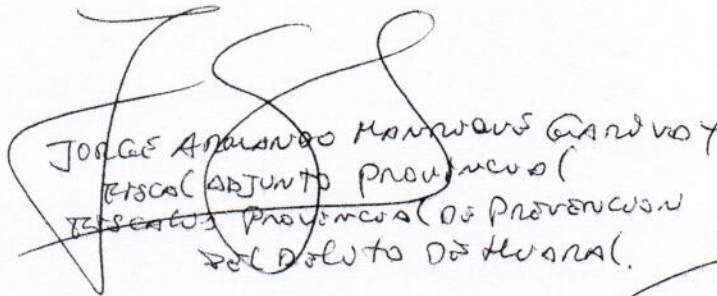 JORGE ARMANDO MANRIQUE GARIVAY
FISCAL ADJUNTO PROVINCIAL
FISCALIA PROVINCIAL DE PREVENCION
DEL DELITO DE HUARAL.